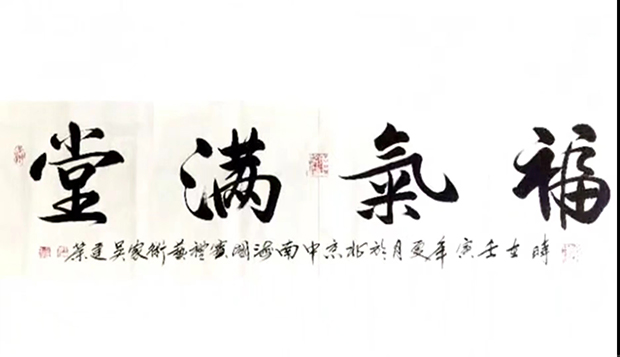 福氣满堂
時在壬寅年夏月於北京中南海國賓禮藝術家吳運榮